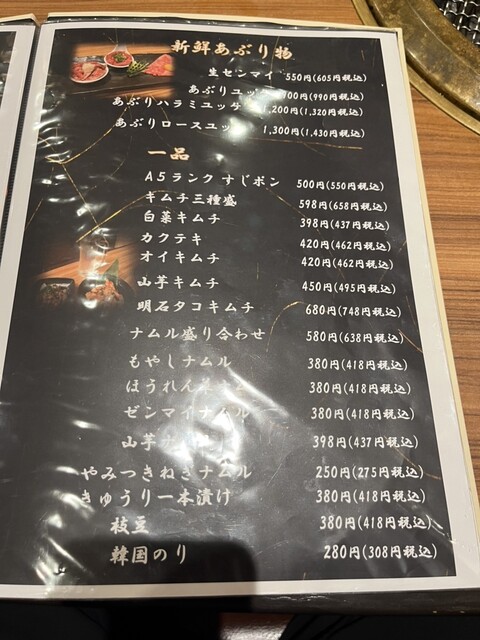 新鮮あぶり物
生センマイ 550円(605円税込)
あぶりユッケ (990円税込)
あぶりハラミユッケ 1,200円(1,320円税込)
あぶりロースユッ 1,300円(1,430円税込)
一品
A5ランク すじポン 500円(550円税込)
キムチ三種盛 598円(658円税込)
白菜キムチ 398円(437円税込)
カクテキ 420円(462円税込)
オイキムチ 420円(462円税込)
山芋キムチ 450円(495円税込)
明石タコキムチ 680円(748円税込)
ナムル盛り合わせ 580円(638円税込)
もやしナムル 380円(418円税込)
ほうれん草ナム 380円(418円税込)
ゼンマイナムル 380円(418円税込)
山芋 398円(437円税込)
やみつきねぎナムル 250円(275円税込)
きゅうり一本漬け 380円(418円税込)
枝豆 380円(418円税込)
韓国のり 280円(308円税込)